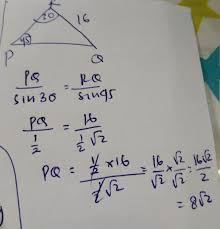 30
16
45
P
Q
PQ/sin30 = RQ/sin45
PQ/(1/2) = 16/(1/2 √2)
PQ = (1/2 × 16)/(1/2 √2) = 16/√2 × √2/√2 = 16√2/2
= 8√2